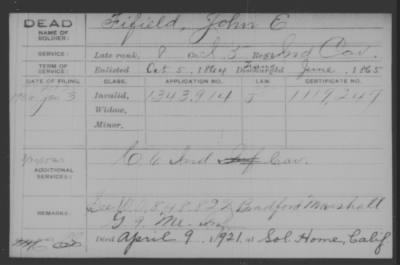 DEAD
NAME OF SOLDIER:
Fifield, John E
SERVICE:
Late rank, Co. I, 5 Reg't Ind Cav.
TERM OF SERVICE:
Enlisted Oct 5, 1864 Discharged June, 1865
DATE OF FILING. CLASS. APPLICATION NO. LAW. CERTIFICATE NO.
Invalid, 1343,914 1117,249
Widow,
Minor,
ADDITIONAL SERVICES:
Ind Inf Cav.
REMARKS:
See Bradford Marshall
Me. Inf
Died April 9, 1921, at Sol Home, Calif